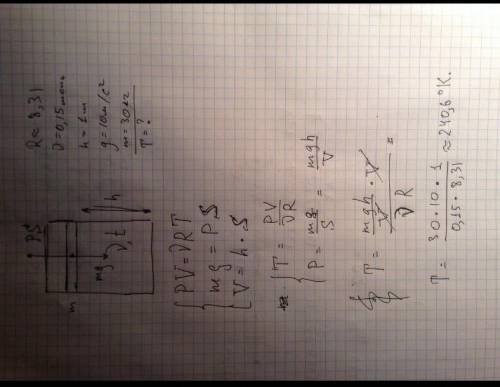 R ≈ 8,31
ν = 0,15 моль
h = 1 м
g = 10 м/с²
m = 30 кг
T = ?
PS
m
mg
ν, t
h
{ PV = νRT
mg = P.S
V = h · S
{ T = PV / νR
P = mg / S = mgh / V
T = mgh / V · V / νR =
T = 30 · 10 · 1 / 0,15 · 8,31 ≈ 240,6 °K.